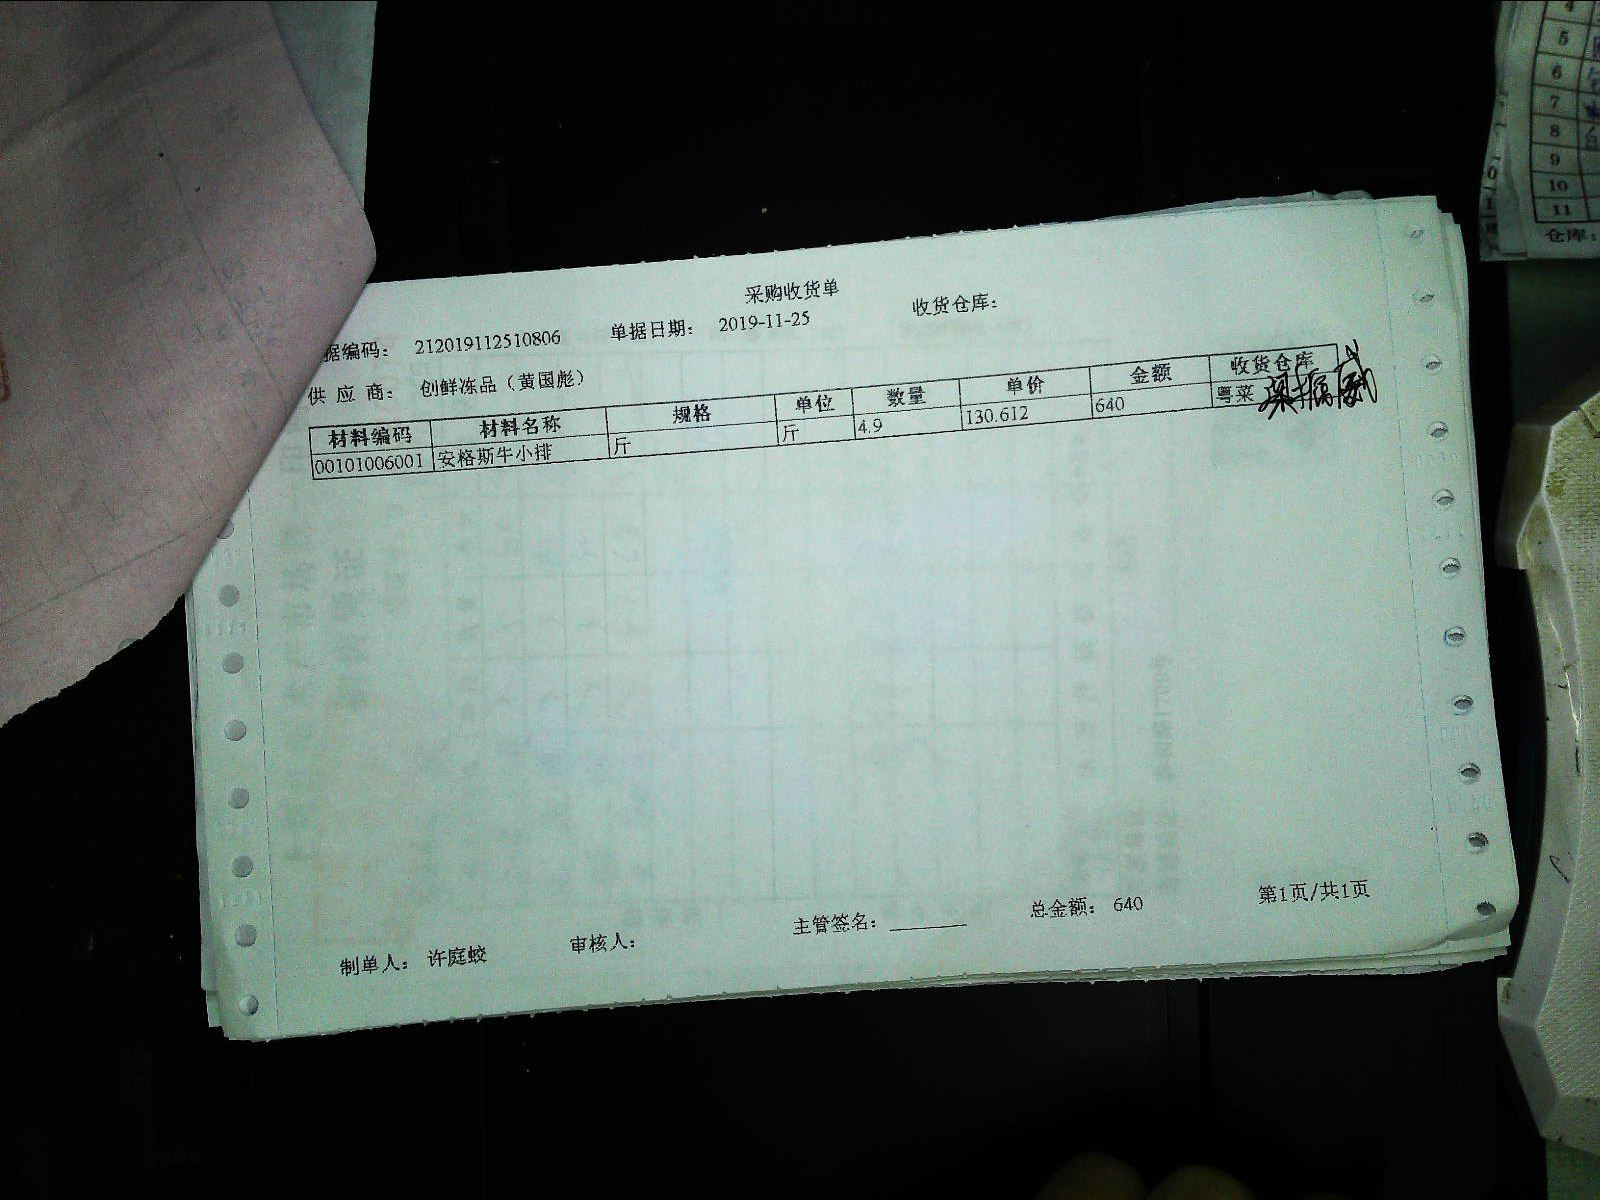 采购收货单
据编码： 212019112510806 单据日期： 2019-11-25 收货仓库：
供 应 商： 创鲜冻品（黄国彪）
材料编码 材料名称 规格 单位 数量 单价 金额 收货仓库
00101006001 安格斯牛小排 斤 斤 4.9 130.612 640 粤菜
制单人： 许庭蛟 审核人： 主管签名： 总金额： 640 第1页/共1页
4
5
6
7
8
9
10
11
仓库：